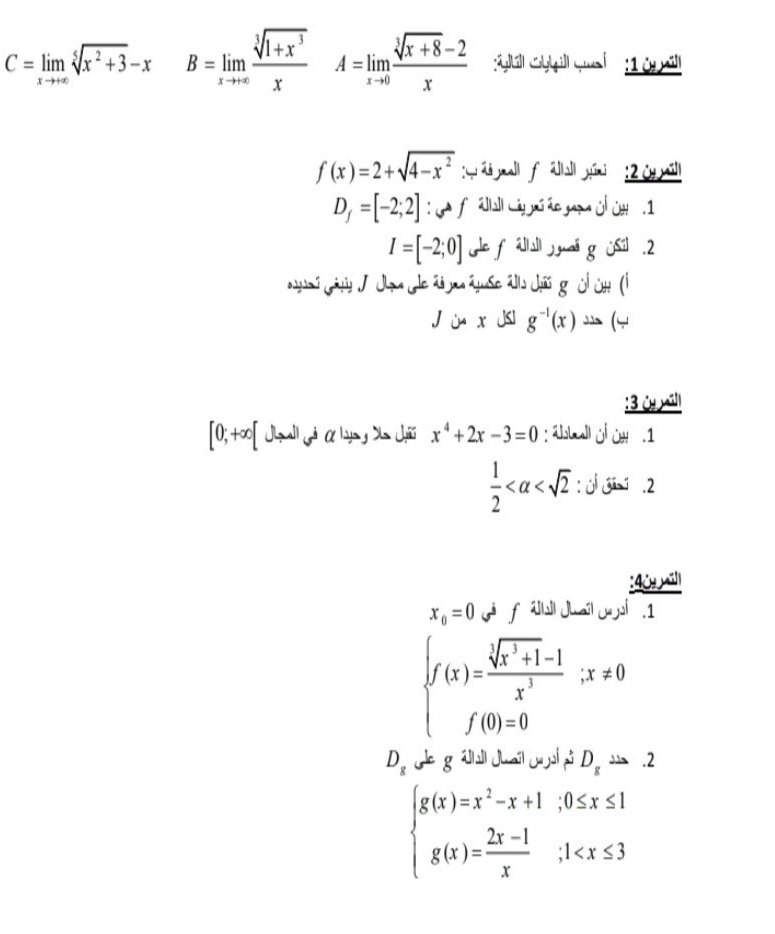 التمرين 1: أحسب النهايات التالية: A = lim_{x→0} (∛(x+8) − 2)/x B = lim_{x→+∞} ∛(1+x³)/x C = lim_{x→+∞} ⁵√(x²+3) − x
التمرين 2: نعتبر الدالة f المعرفة ب: f(x) = 2+√(4−x²)
1. بين أن مجموعة تعريف الدالة f هي : D_f = [−2;2]
2. لتكن g قصور الدالة f على I = [−2;0]
أ) بين أن g تقبل دالة عكسية معرفة على مجال J ينبغي تحديده
ب) حدد g⁻¹(x) لكل x من J
التمرين 3:
1. بين أن المعادلة : x⁴ + 2x − 3 = 0 تقبل حلا وحيدا α في المجال [0;+∞[
2. تحقق أن : 1/2 < α < √2
التمرين4:
1. أدرس اتصال الدالة f في x₀ = 0
f(x) = (∛(x³+1) − 1)/x³ ;x ≠ 0
f(0) = 0
2. حدد D_g ثم أدرس اتصال الدالة g على D_g
g(x) = x² − x + 1 ;0 ≤ x ≤ 1
g(x) = (2x − 1)/x ;1 < x ≤ 3